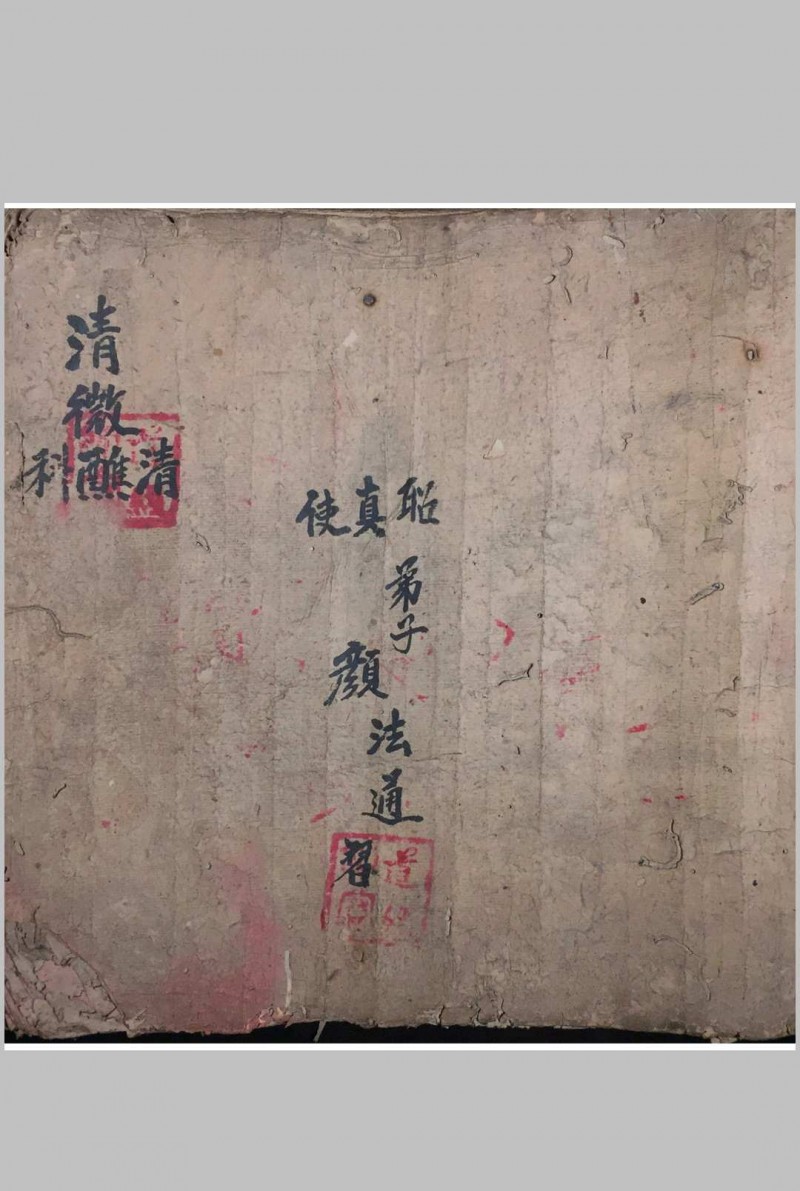 昭真使
弟子
顔法通習
清微
清醮科